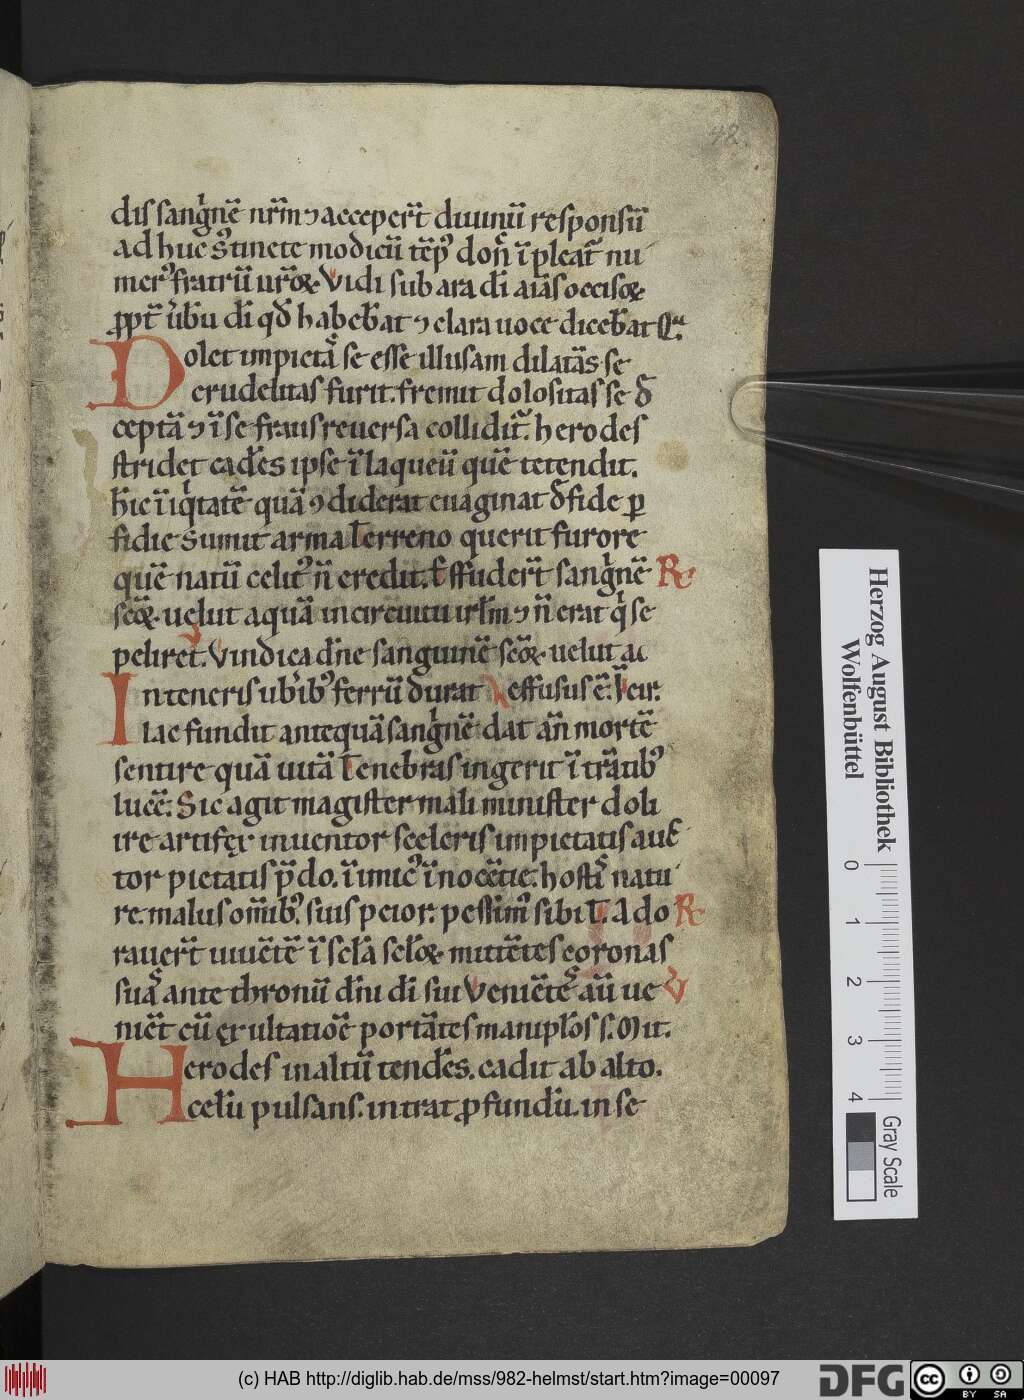 48.
dis sangͥnē nr̄m ⁊ acceper̄t diuinū responsū
ad huc sꝰtinete modicū tēpꝰ don̄ īpleat᷑ nu
merꝰ fratrū ur̄oꝝ. Vidi sub ara dī aīas occisoꝝ
ꝓpt̄ úbū dī qđ habebāt ⁊ clara uoce dicebāt
Dolet impietas se esse illusam dilatās se
crudelitas furit. fremit dolositas se đ
ceptā ⁊ ī se fraus reuersa collidit᷑. herodes
stridet cadēs ipse ī laqueū quē tetendit.
hic īiqͥtatē quā ꝯdiderat euaginat đ fide ꝑ
fidie sumit arma Terreno querit furore
quē natū celitꝰ n̄ credit. Effuder̄t sangͥnē R
scōꝝ. uelut aquā in circuitu irl̄m ⁊ n̄ erat qͥ se
peliret. Vindica dn̄e sanguinē scōꝝ. uelut ac
In teneris ubībꝰ ferrū durat effusus ē. ī cir.
lac fundit antequā sangͥnē. dat an̄ mortē
sentire quā uitā Tenebras ingerit ī trātibꝰ
lucē. Sic agit magister mali minister doli
ire artifex inuentor sceleris impietatis auc
tor pietatis p̄do. īimicꝰ īnocētie. hostis natu
re. malus om̄ibꝰ. suis peior. pessimꝰ sibi T. Ado R
rauer̄t uiuētē ī scl̄a scl̄oꝝ mittētes coronas
suas ante thronū dn̄i dī sui Veniētes aū ue V
niēt cū exultatiōe portātes manipl̄os s. Mit.
Herodes in altū tendēs. cadit ab alto.
celū pulsans. intrat ꝓfundū. in se
Herzog August Bibliothek
Wolfenbüttel
0 1 2 3 4
Gray Scale
(c) HAB http://diglib.hab.de/mss/982-helmst/start.htm?image=00097
DFG
cc BY SA